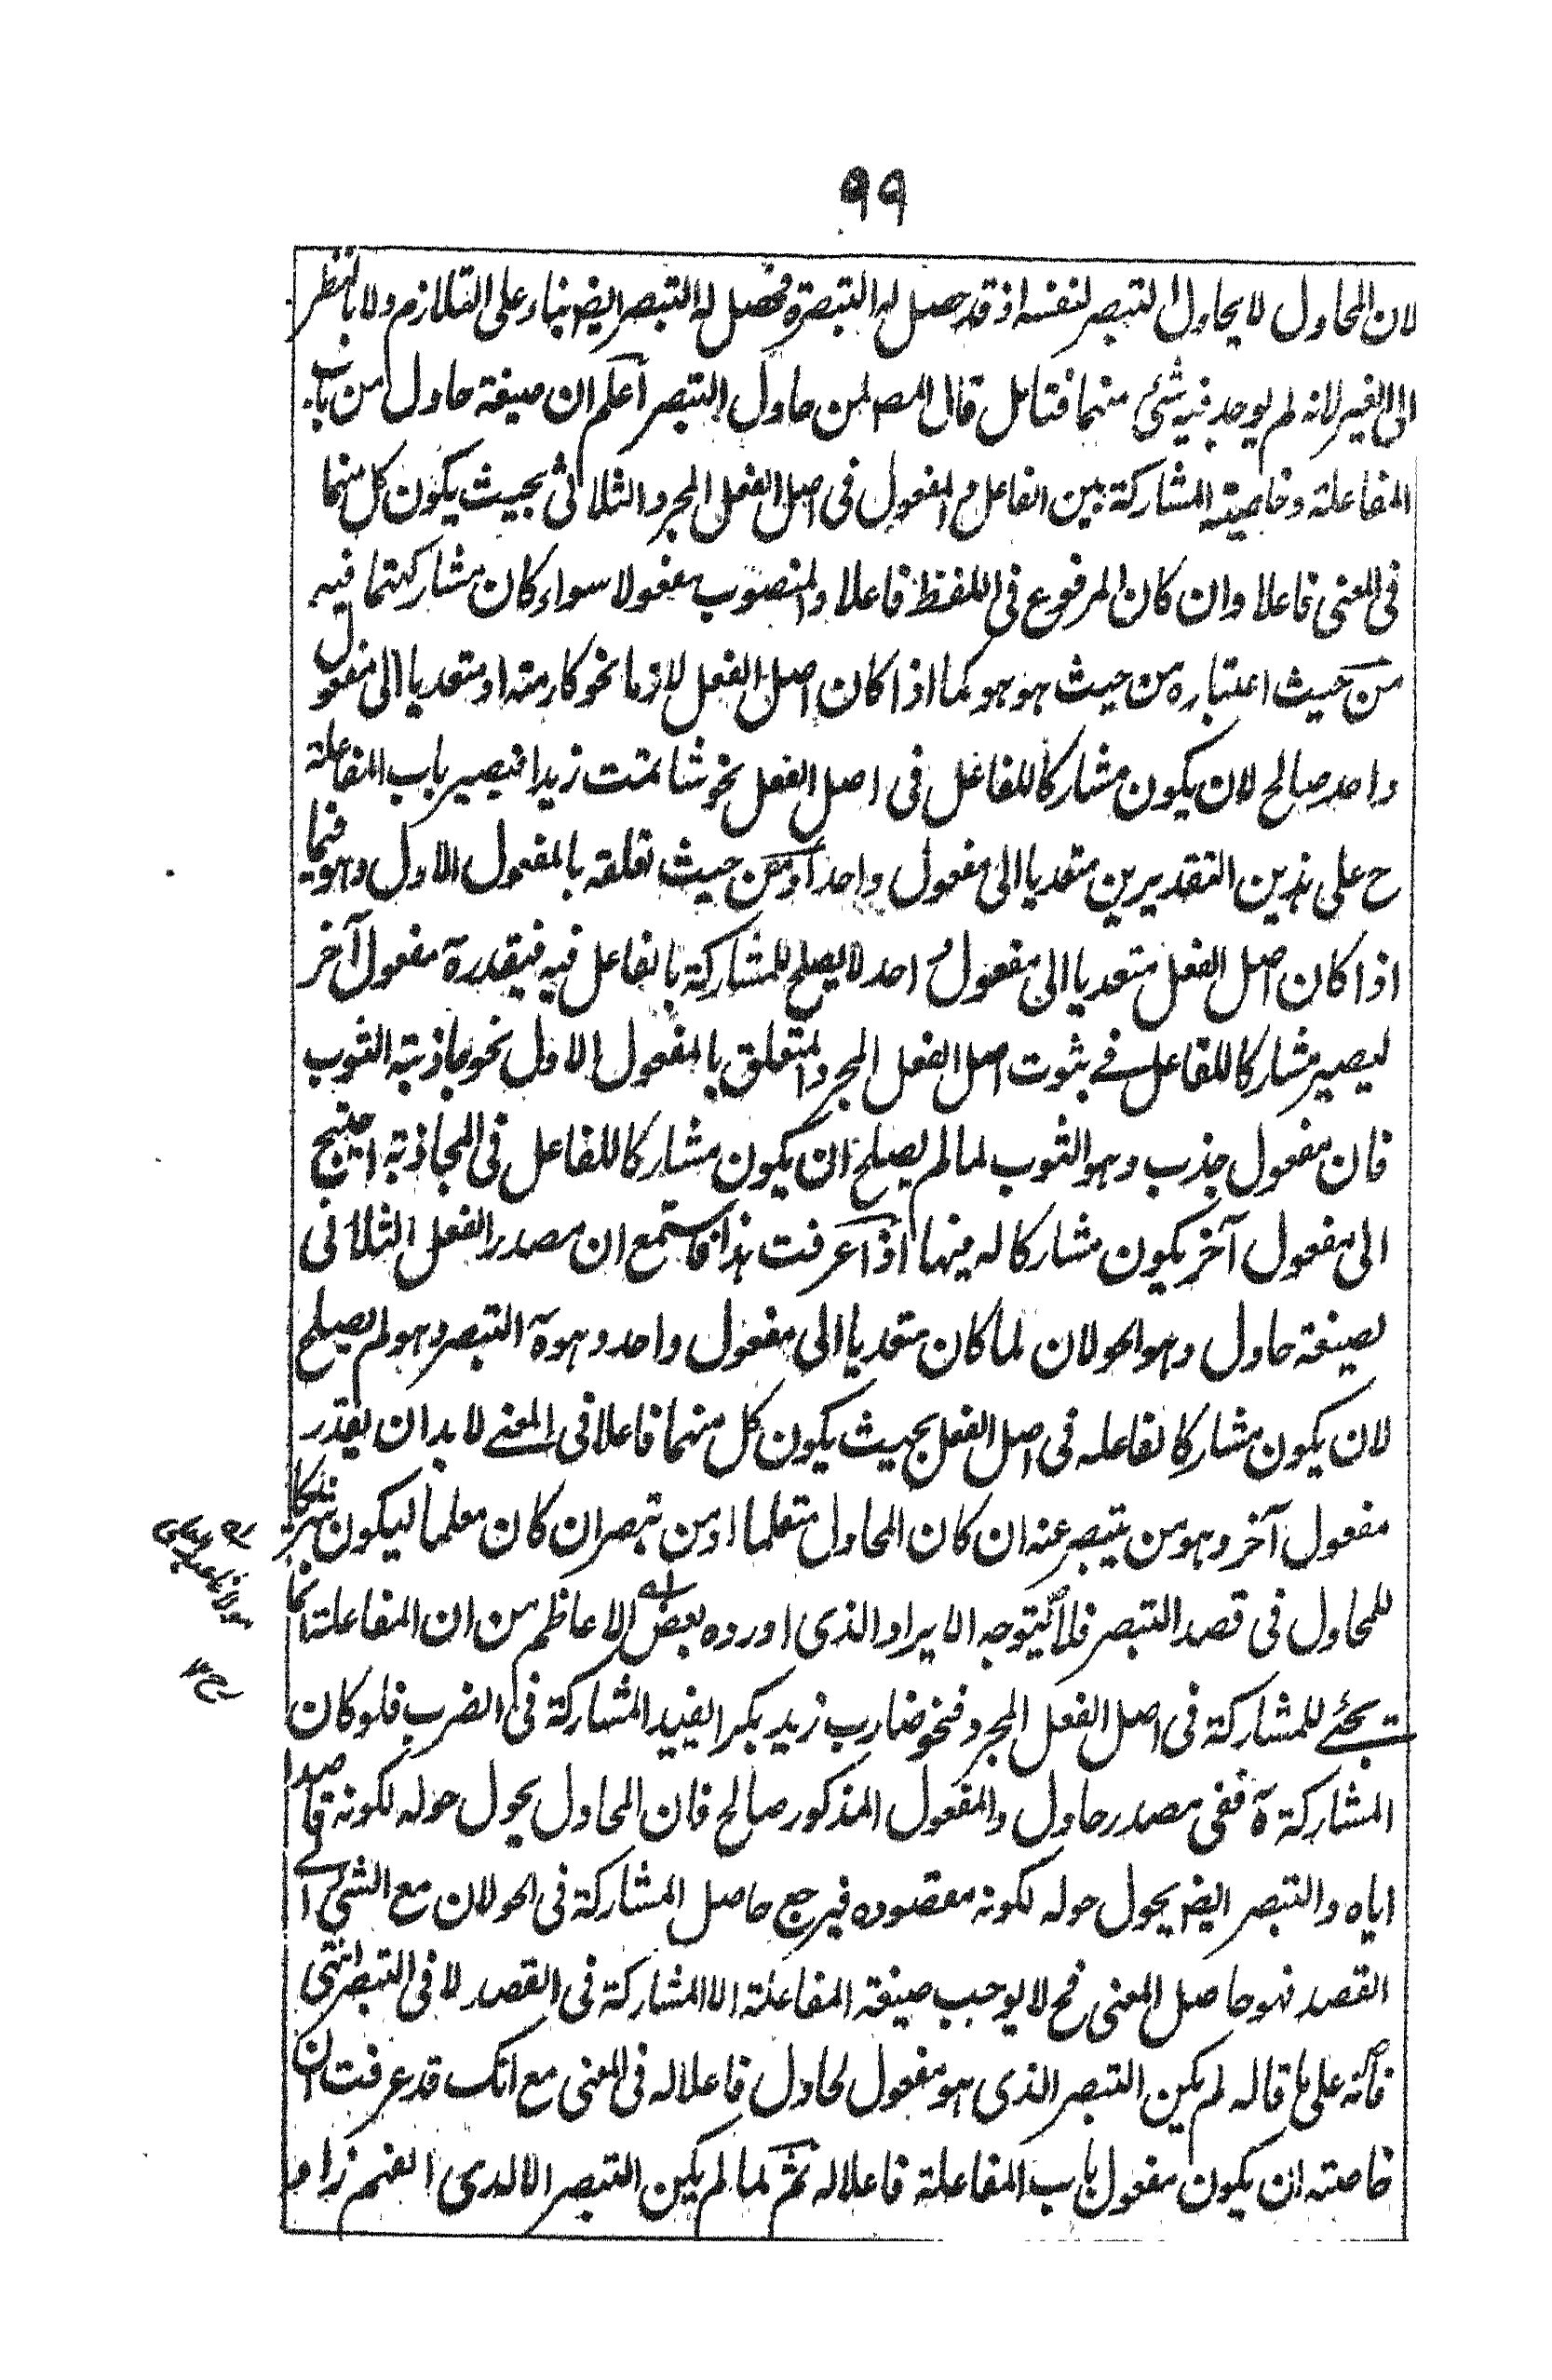 ٩٩
لان المحاول لا يحاول التبصر لنفسه اذ قد حصل له التبصرة فحصل له التبصر ايض بناء على التلازم ولا بالنظر
الى الغير لانه لم يوجد فيه شئ منهما فتامل قال المص لمن حاول التبصر اعلم ان صيغة حاول من باب
المفاعلة وخاصيته المشاركة بين الفاعل و المفعول فى اصل الفعل المجرد الثلاثى بحيث يكون كل منهما
فى المعنى فاعلا وان كان المرفوع فى اللفظ فاعلا والمنصوب مفعولا سواء كان مشاركتهما فيه
من حيث اعتباره من حيث هو هو كما اذا كان اصل الفعل لازما نحو كارمته او متعديا الى مفعول
واحد صالح لان يكون مشاركا للفاعل فى اصل الفعل نحو شاتمت زيدا فيصير باب المفاعلة
ح على هذين التقديرين متعديا الى مفعول واحد او من حيث تعلقه بالمفعول الاول وهو فيما
اذا كان اصل الفعل متعديا الى مفعول واحد لا يصلح للمشاركة بالفاعل فيه فيقدرة مفعول آخر
ليصير مشاركا للفاعل فے ثبوت اصل الفعل المجرد المتعلق بالمفعول الاول نحو جاذبته الثوب
فان مفعول جذب وهو الثوب لما لم يصلح ان يكون مشاركا للفاعل فى المجاذبة احتيج
الى مفعول آخر يكون مشاركا له فيها اذا عرفت هذا فاستمع ان مصدر الفعل الثلاثى
لصيغة حاول وهو الحولان لما كان متعديا الى مفعول واحد وهوة التبصر وهو لم يصلح
لان يكون مشاركا لفاعله فى اصل الفعل بحيث يكون كل منهما فاعلا فى المعنے لا بد ان يقدر
مفعول آخر وهو من يتبصر عنه ان كان المحاول متعلما او من تبصر ان كان معلما ليكون شريكا
للمحاول فى قصد التبصر فلا يتوجه الايراد الذى اورده بعض الاعاظم من ان المفاعلة انما
تجئے للمشاركة فى اصل الفعل المجرد فنحو ضارب زيد بكرا يفيد المشاركة فى الضرب فلو كان
المشاركة ة ففى مصدر حاول والمفعول المذكور صالح فان المحاول يحول حوله لكونه قاصدا
اياه والتبصر ايض يحول حوله لكونه مقصوده فيرجع حاصل المشاركة فى الحولان مع الشئ الے
القصد فهو حاصل المعنى فح لا يوجب صيغة المفاعلة الا المشاركة فى القصد لا فى التبصر انتهى
فانه على ما قاله لم يكن التبصر الذى هو مفعول لحاول فاعلا له فى المعنى مع انك قد عرفت ان
خاصته ان يكون مفعول باب المفاعلة فاعلا له ثم لما لم يكن التبصر الا لدى الفهم زاد